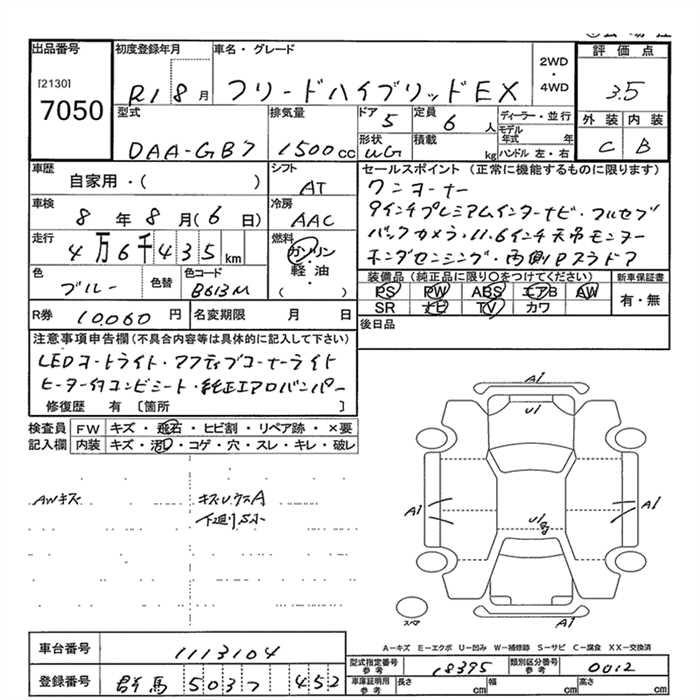 出品番号 初度登録年月 車名・グレード 評価点
[2130] 7050 R1 8月 フリードハイブリッドEX 2WD・4WD 3.5
型式 排気量 ドア 定員 ディーラー・並行 外装 内装
DAA-GB7 1500cc 5 6人 モデル年式 年 C B
形状 WG 積載 kg ハンドル 左・右
車歴 シフト セールスポイント (正常に機能するものに限ります)
自家用・( ) AT ワンオーナー
車検 冷房 9インチプレミアムインターナビ・フルセグ
8年8月(6日) AAC バックカメラ・11.6インチ天吊モニター
走行 燃料 ホンダセンシング・両側Pスラドア
4万6千435km ガソリン・軽油・( )
色 色替 色コード 装備品(純正品に限り〇をつけてください) 新車保証書
ブルー B613M PS PW ABS エアB AW 有・無
SR ナビ TV カワ
R券 10,060円 名変期限 月 日 後日品
注意事項申告欄(不具合内容等は具体的に記入して下さい)
LEDヨートライト・アクティブコーナーライト
ヒーター付コンビシート・純正エアロバンパー
修復歴 有 [箇所 ]
検査員 FW キズ・飛石・ヒビ割・リペア跡・×要
記入欄 内装 キズ・汚レ・コゲ・穴・スレ・キレ・破レ
AWキズ キズUウスA
下廻りSホ
A1
U1
A1 A1
U1
A1
スペア
A-キズ E-エクボ U-凹み W-補修跡 S-サビ C-腐食 XX-交換済
車台番号 1113104
型式指定番号 参考 18395 類別区分番号 参考 0012
登録番号 群馬 503フ 452
車庫証明用 参考 長さ cm 幅 cm 高さ cm